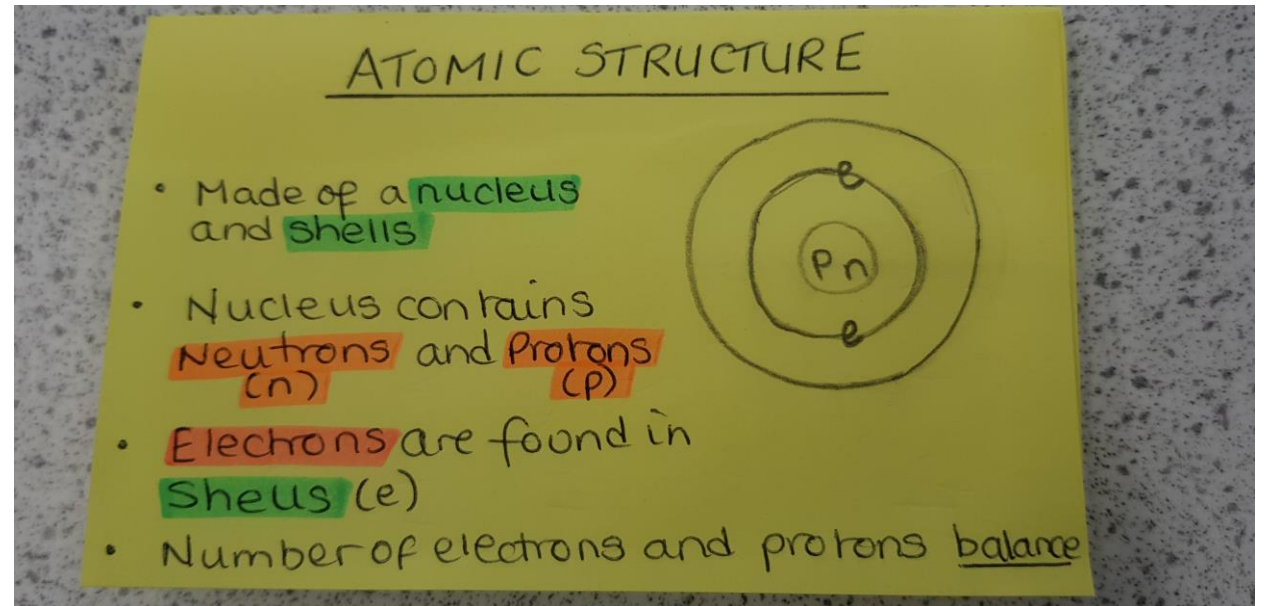 ATOMIC STRUCTURE
• Made of a nucleus
and shells
• Nucleus contains
Neutrons and Protons
(n) (p)
• Electrons are found in
Shells (e)
• Number of electrons and protons balance
e
Pn
e